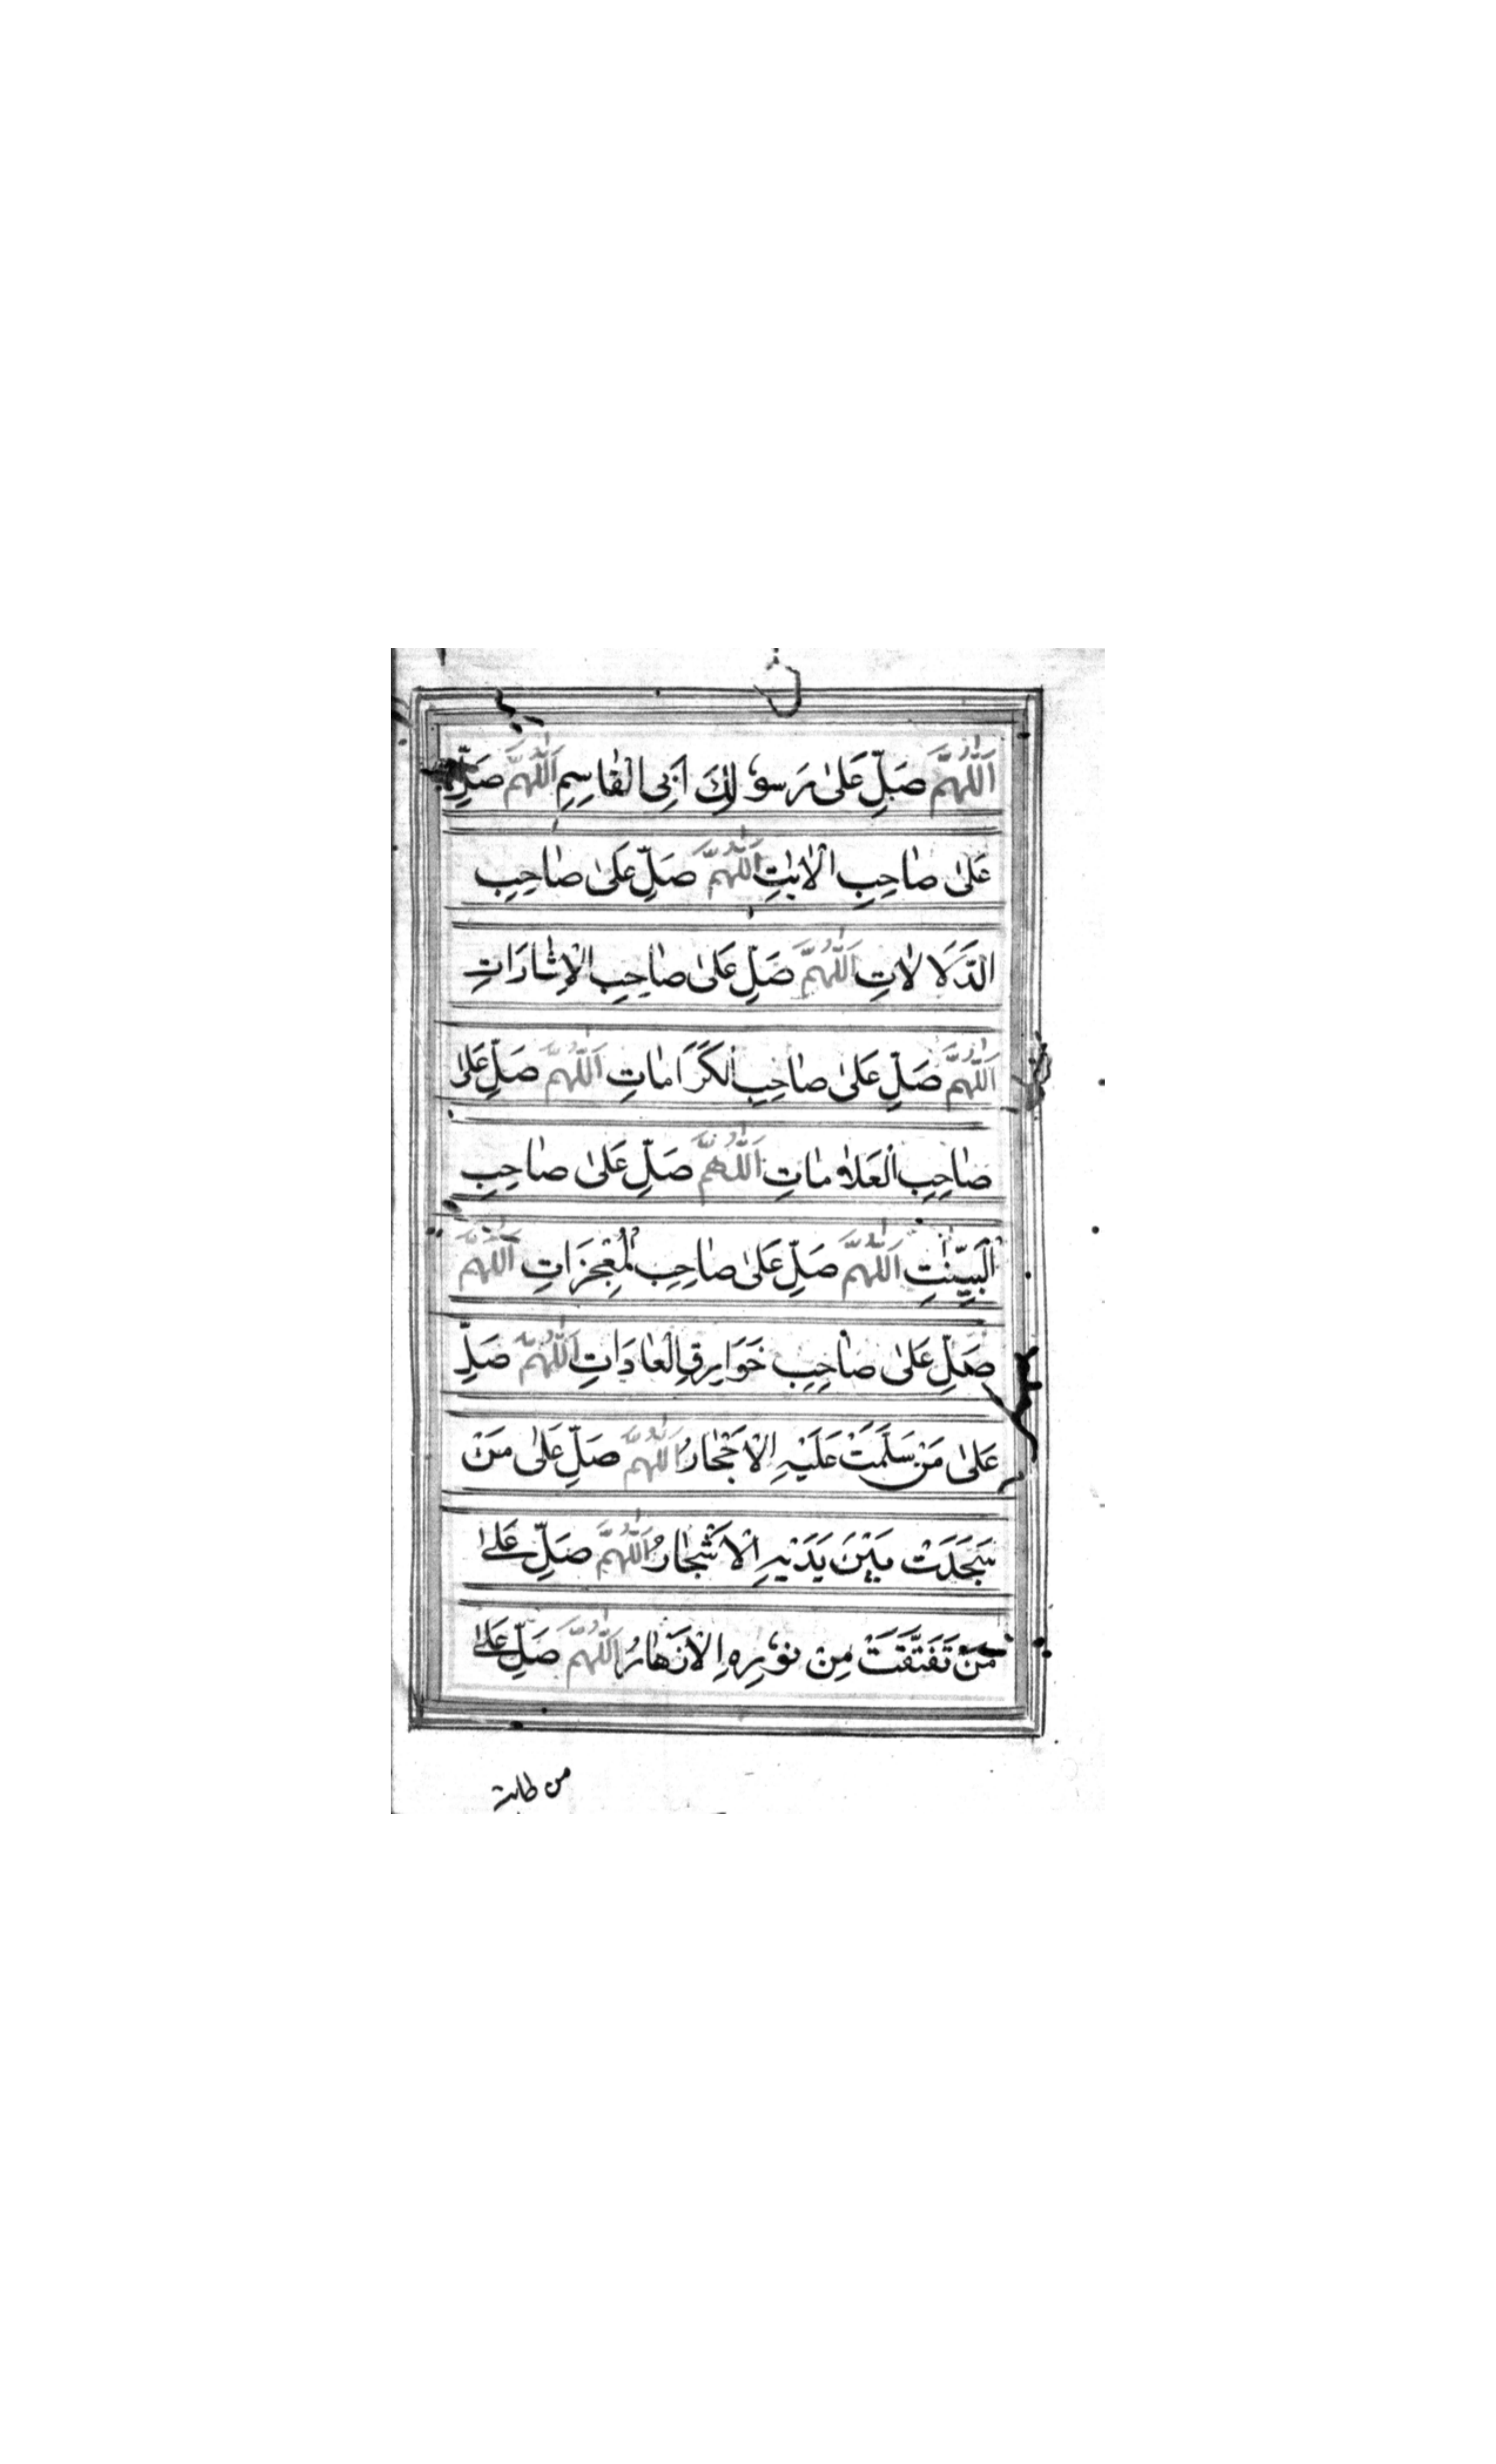 اَللّٰهُمَّ صَلِّ عَلىٰ رَسوُلِكَ اَبِى الْقٰاسِمِ اَللّٰهُمَّ صَلِّ
عَلىٰ صٰاحِبِ الْاٰيٰتِ اَللّٰهُمَّ صَلِّ عَلىٰ صٰاحِبِ
الدَّلَالٰاتِ اَللّٰهُمَّ صَلِّ عَلىٰ صٰاحِبِ الْاِشٰارَاتِ
اَللّٰهُمَّ صَلِّ عَلىٰ صٰاحِبِ الْكَرَامٰاتِ اَللّٰهُمَّ صَلِّ عَلىٰ
صٰاحِبِ الْعَلٰامٰاتِ اَللّٰهُمَّ صَلِّ عَلىٰ صٰاحِبِ
الْبَيِّنٰتِ اَللّٰهُمَّ صَلِّ عَلىٰ صٰاحِبِ الْمُعْجِزَاتِ اَللّٰهُمَّ
صَلِّ عَلىٰ صٰاحِبِ خَوَارِقِ الْعٰادَاتِ اَللّٰهُمَّ صَلِّ
عَلىٰ مَنْ سَلَّمَتْ عَلَيْهِ الْاَحْجٰارُ اَللّٰهُمَّ صَلِّ عَلىٰ مَنْ
سَجَدَتْ بَيْنَ يَدَيْهِ الْاَشْجٰارُ اَللّٰهُمَّ صَلِّ عَلىٰ
مَنْ تَفَتَّقَتْ مِنْ نوُرِهِ الْاَزْهٰارُ اَللّٰهُمَّ صَلِّ عَلىٰ
من طابت